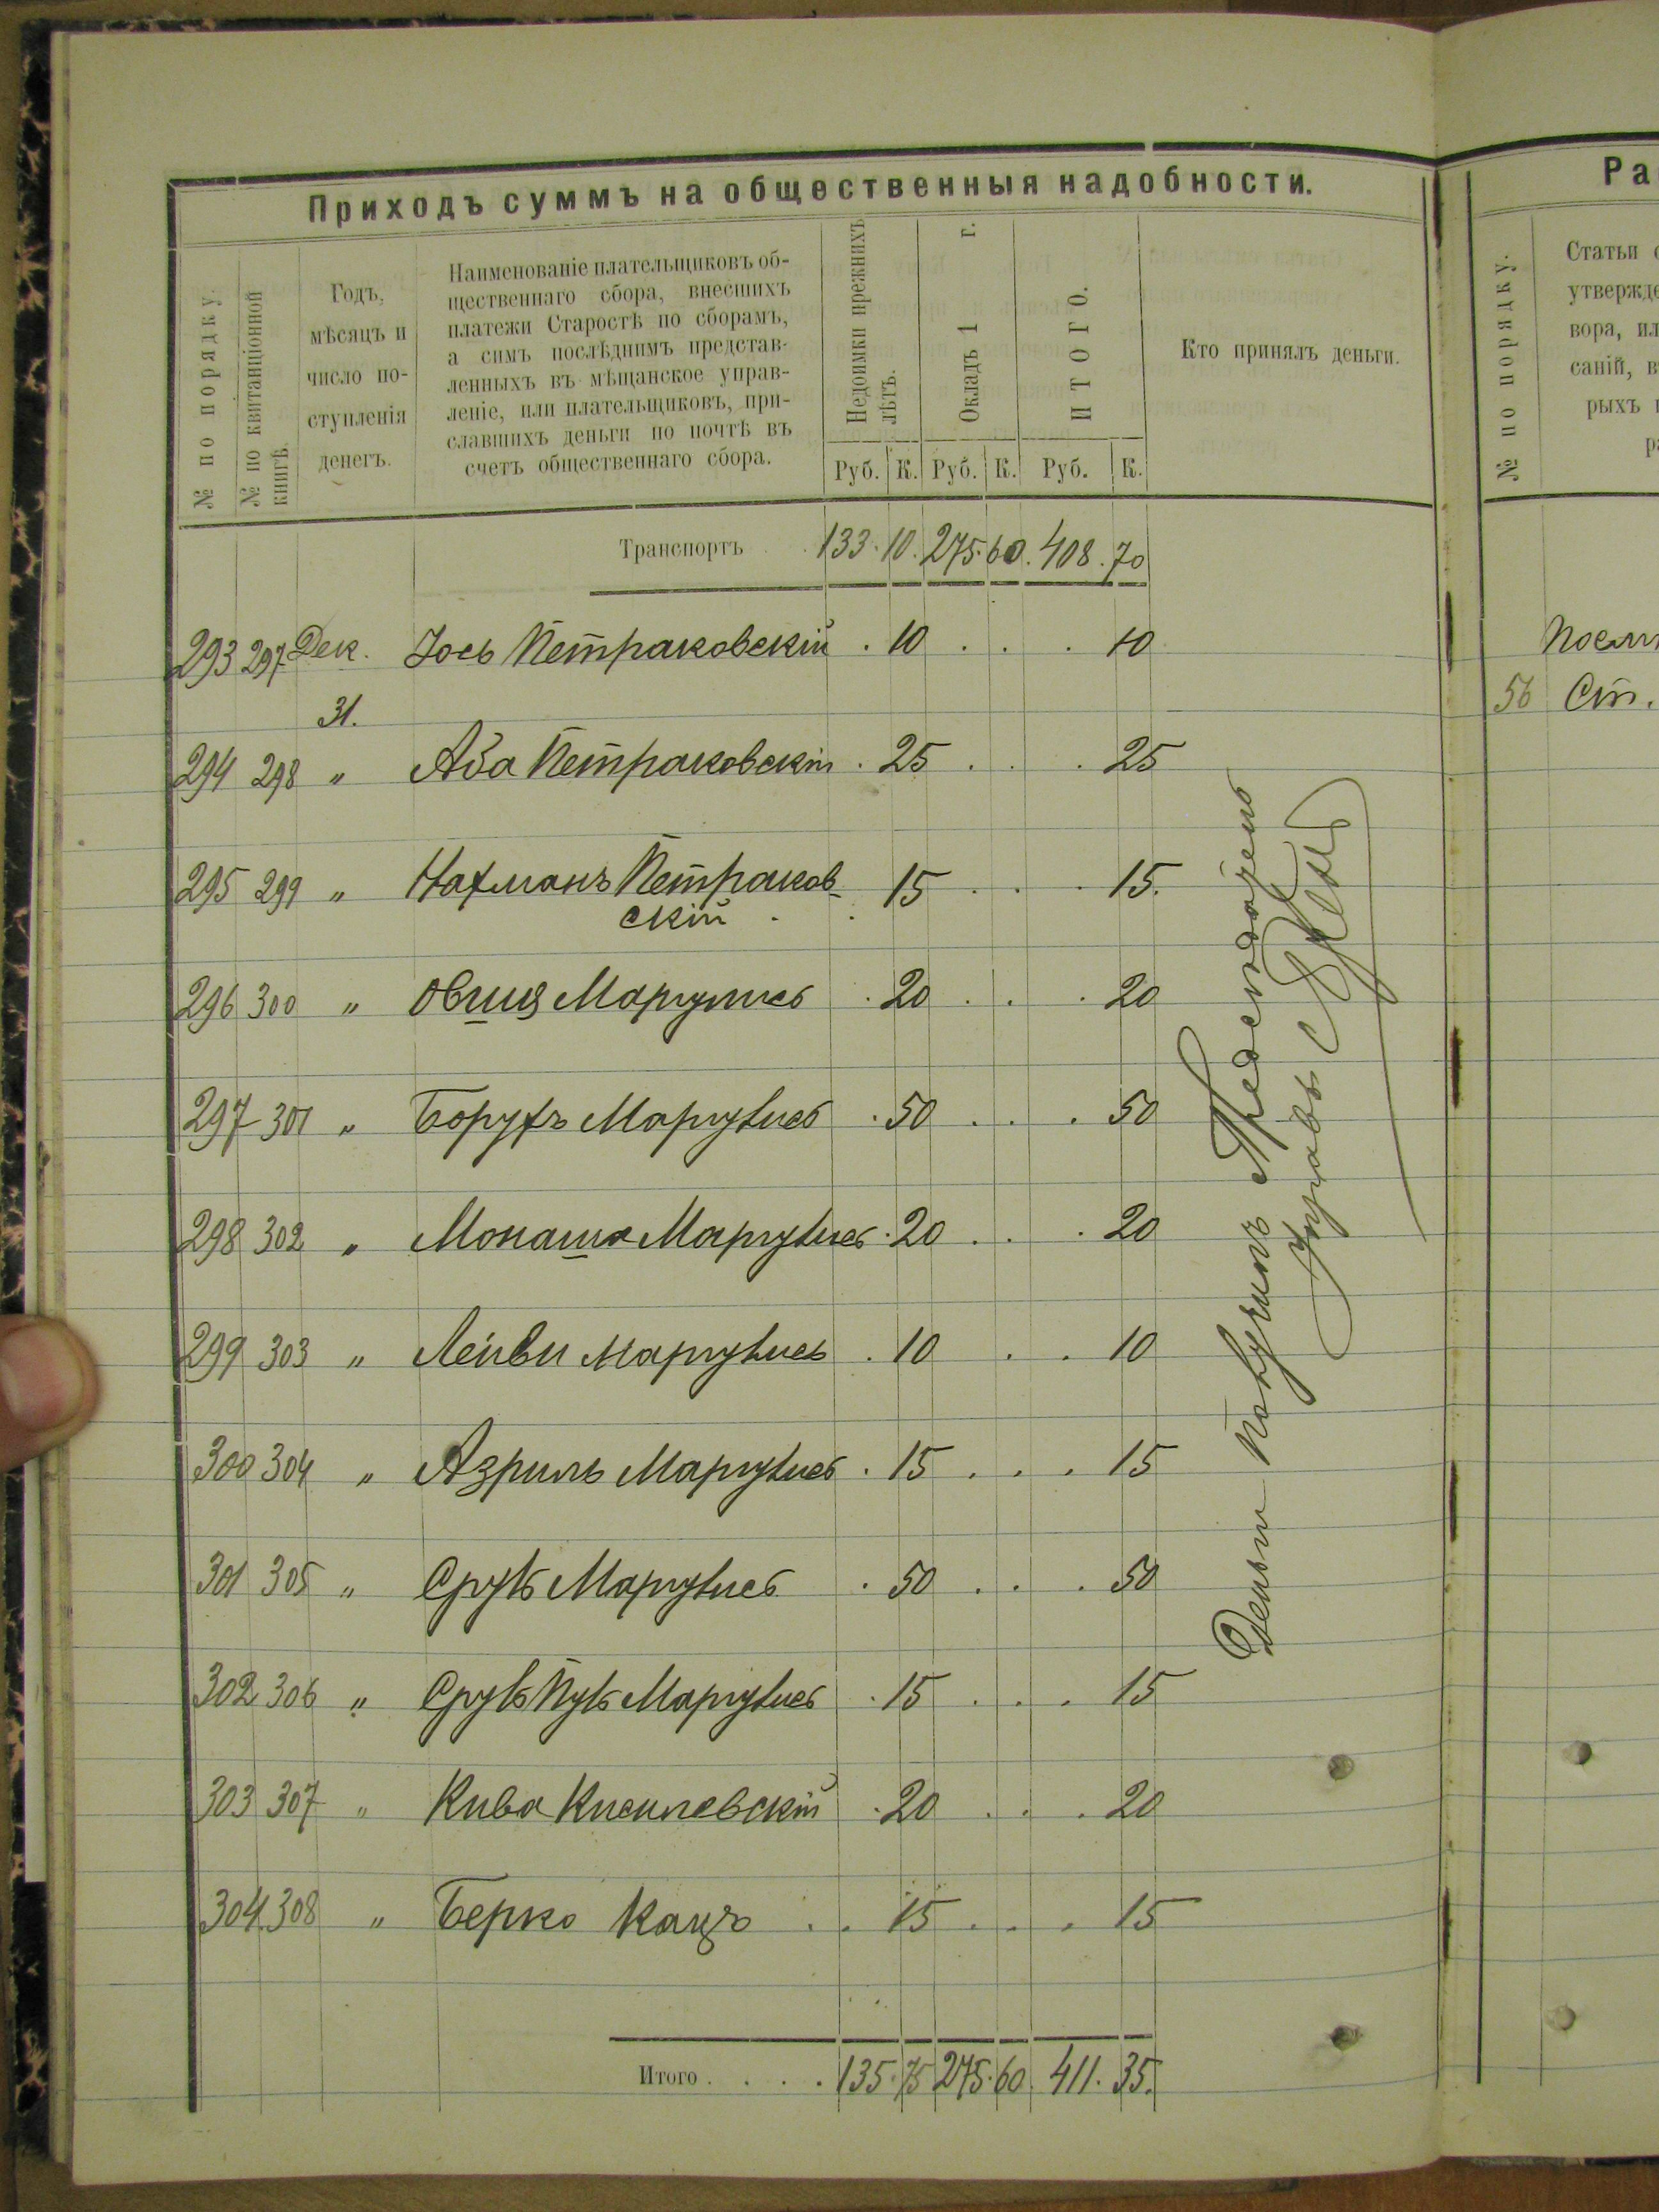 Приходъ суммъ на общественныя надобности.
№ по порядку.
№ по квитанціонной
книгѣ.
Годъ,
мѣсяцъ и
число по-
ступленія
денегъ.
Наименованіе плательщиковъ об-
щественнаго сбора, внесшихъ
платежи Старостѣ по сборамъ,
а симъ послѣднимъ представ-
ленныхъ въ мѣщанское управ-
леніе, или плательщиковъ, при-
славшихъ деньги по почтѣ въ
счетъ общественнаго сбора.
Недоимки прежнихъ
лѣтъ.
Окладъ 1 г.
ИТОГО.
Руб. К. Руб. К. Руб. К.
Кто принялъ деньги.
Транспортъ . . 133. 10. 275. 60. 408. 70
293 297 Дек. Іось Петраковскій . 10 . . . 10
31.
294 298 " Аба Петраковскій . 25 . . . 25
295 299 " Нахманъ Петраков-
скій . . 15 . . . 15.
296 300 " Овшія Маргулисъ . 20 . . . 20
297 301 " Борухъ Маргулисъ . 50 . . . 50
298 302 " Монаша Маргулисъ . 20 . . . 20
299 303 " Лейви Маргулисъ . 10 . . 10
300 304 " Азриль Маргулисъ . 15 . . . 15
301 305 " Сруль Маргулисъ . 50 . . . 50
302 306 " Сруль Пуль Маргулисъ . 15 . . . 15
303 307 " Кива Кисилевскій . 20 . . . 20
304 308 " Берко Кацъ . . 15 . . . 15
Итого . . . . 135. 75 275. 60. 411. 35.
Деньги получилъ Предсѣдатель
Управы
Ра
№ по порядку.
Статьи
утвержде
вора, ил
саній, в
рыхъ
ра
56 Ст.